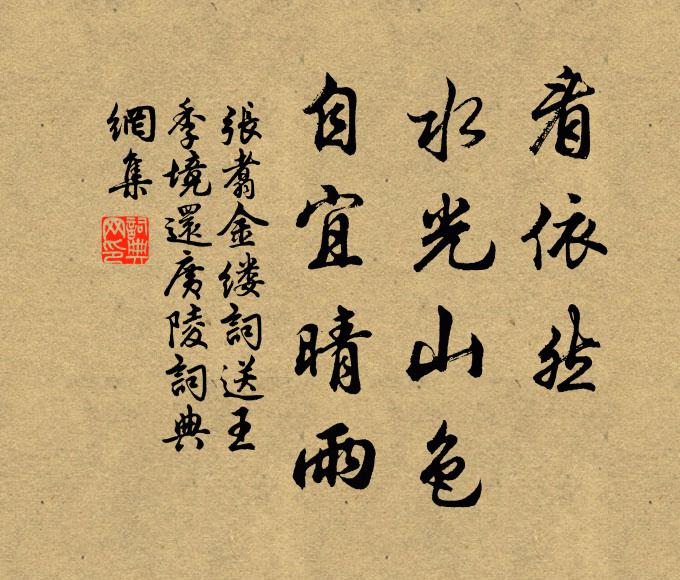 看依然
水光山色
自宜晴雨
張翥金缕詞送王
季境還廣陵詞典
網集
詞典
网印